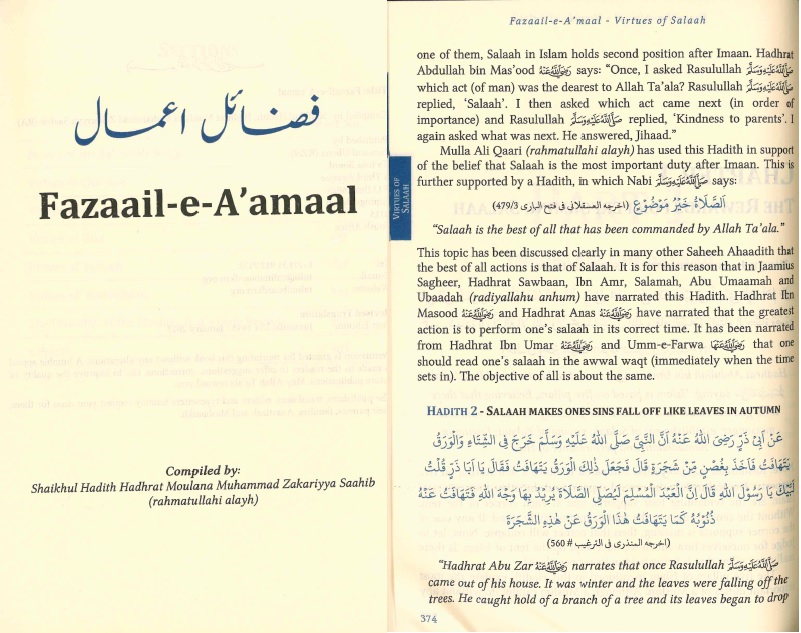 فضائل اعمال
Fazaail-e-A’amaal
Compiled by:
Shaikhul Hadith Hadhrat Moulana Muhammad Zakariyya Saahib
(rahmatullahi alayh)
Fazaail-e-A’maal - Virtues of Salaah
one of them, Salaah in Islam holds second position after Imaan. Hadhrat
Abdullah bin Mas’ood رَضِيَ اللهُ عَنْهُ says: “Once, I asked Rasulullah صَلَّى اللهُ عَلَيْهِ وَسَلَّمَ
which act (of man) was the dearest to Allah Ta’ala? Rasulullah صَلَّى اللهُ عَلَيْهِ وَسَلَّمَ
replied, ‘Salaah’. I then asked which act came next (in order of
importance) and Rasulullah صَلَّى اللهُ عَلَيْهِ وَسَلَّمَ replied, ‘Kindness to parents’. I
again asked what was next. He answered, Jihaad.”
Mulla Ali Qaari (rahmatullahi alayh) has used this Hadith in support
of the belief that Salaah is the most important duty after Imaan. This is
further supported by a Hadith, in which Nabi صَلَّى اللهُ عَلَيْهِ وَسَلَّمَ says:
VIRTUES OF
SALAAH
اَلصَّلَاةُ خَيْرُ مَوْضُوْعٍ (اخرجه العسقلانى فى فتح البارى 479/3)
“Salaah is the best of all that has been commanded by Allah Ta’ala.”
This topic has been discussed clearly in many other Saheeh Ahaadith that
the best of all actions is that of Salaah. It is for this reason that in Jaamius
Sagheer, Hadhrat Sawbaan, Ibn Amr, Salamah, Abu Umaamah and
Ubaadah (radiyallahu anhum) have narrated this Hadith. Hadhrat Ibn
Masood رَضِيَ اللهُ عَنْهُ and Hadhrat Anas رَضِيَ اللهُ عَنْهُ have narrated that the greatest
action is to perform one’s salaah in its correct time. It has been narrated
from Hadhrat Ibn Umar رَضِيَ اللهُ عَنْهُ and Umm-e-Farwa رَضِيَ اللهُ عَنْهَا that one
should read one’s salaah in the awwal waqt (immediately when the time
sets in). The objective of all is about the same.
HADITH 2 - SALAAH MAKES ONES SINS FALL OFF LIKE LEAVES IN AUTUMN
عَنْ اَبِىْ ذَرٍّ رَضِىَ اللهُ عَنْهُ اَنَّ النَّبِىَّ صَلَّى اللهُ عَلَيْهِ وَسَلَّمَ خَرَجَ فِى الشِّتَاءِ وَالْوَرَقُ
يَتَهَافَتُ فَاَخَذَ بِغُصْنٍ مِنْ شَجَرَةٍ قَالَ فَجَعَلَ ذٰلِكَ الْوَرَقُ يَتَهَافَتُ فَقَالَ يَا اَبَا ذَرٍّ قُلْتُ
لَبَّيْكَ يَا رَسُوْلَ اللهِ قَالَ اِنَّ الْعَبْدَ الْمُسْلِمَ لَيُصَلِّى الصَّلَاةَ يُرِيْدُ بِهَا وَجْهَ اللهِ فَتَهَافَتُ عَنْهُ
ذُنُوْبُهُ كَمَا يَتَهَافَتُ هٰذَا الْوَرَقُ عَنْ هٰذِهِ الشَّجَرَةِ
(اخرجه المنذرى فى الترغيب # 560)
“Hadhrat Abu Zar رَضِيَ اللهُ عَنْهُ narrates that once Rasulullah صَلَّى اللهُ عَلَيْهِ وَسَلَّمَ
came out of his house. It was winter and the leaves were falling off the
trees. He caught hold of a branch of a tree and its leaves began to drop
374